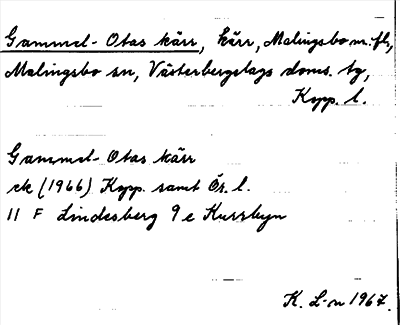 Gammel-Otas kärr, kärr, Malingsbo m.fl.,
Malingsbo sn, Västerbergslags doms. tg,
Kopp. l.
Gammel-Otas kärr
ek (1966) Kopp. samt Ör. l.
11 F Lindesberg 9 e Kurrbyn
K. L-n 1967.